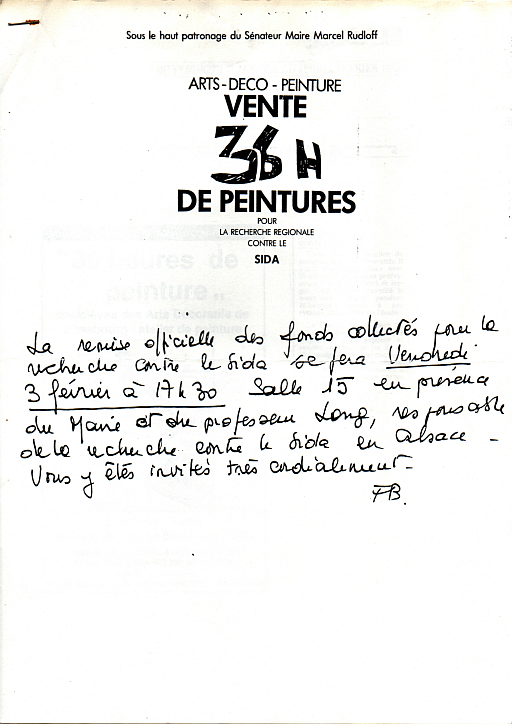 Sous le haut patronage du Sénateur Maire Marcel Rudloff
ARTS-DECO-PEINTURE
VENTE
36 H
DE PEINTURES
POUR
LA RECHERCHE REGIONALE
CONTRE LE
SIDA
La remise officielle des fonds collectés pour la
recherche contre le Sida se fera Vendredi
3 février à 17h30 Salle 15 en présence
du Maire et du professeur Lang, responsable
de la recherche contre le Sida en Alsace -
Vous y êtes invités très cordialement -
FB.